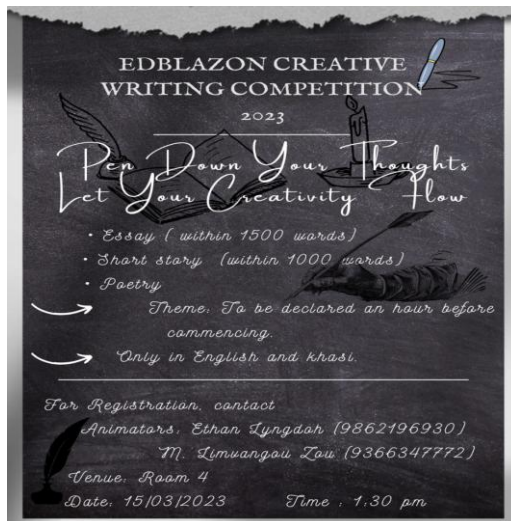 EDBLAZON CREATIVE
WRITING COMPETITION
2023
Pen Down Your Thoughts
Let Your Creativity Flow
• Essay ( within 1500 words)
• Short story (within 1000 words)
• Poetry
Theme: To be declared an hour before
commencing.
Only in English and khasi.
For Registration, contact
Animators, Ethan Lyngdoh (9862196930)
M. Limuangou Zou (9366347772)
Venue: Room 4
Date: 15/03/2023 Time : 1:30 pm